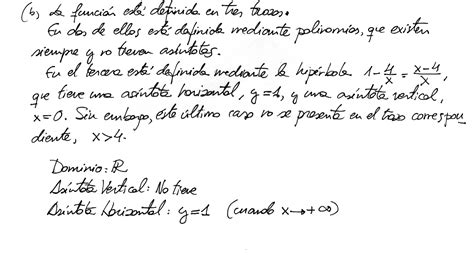 (b) La función está definida en tres trozos.
En dos de ellos está definida mediante polinomios, que existen
siempre y no tienen asíntotas.
En el tercero está definida mediante la hipérbola 1-4/x = x-4/x,
que tiene una asíntota horizontal, y=1, y una asíntota vertical,
x=0. Sin embargo, este último caso no se presenta en el trozo correspon
diente, x>4.
Dominio: ℝ
Asíntota Vertical: No tiene
Asíntota Horizontal: y=1 (cuando x→+∞)